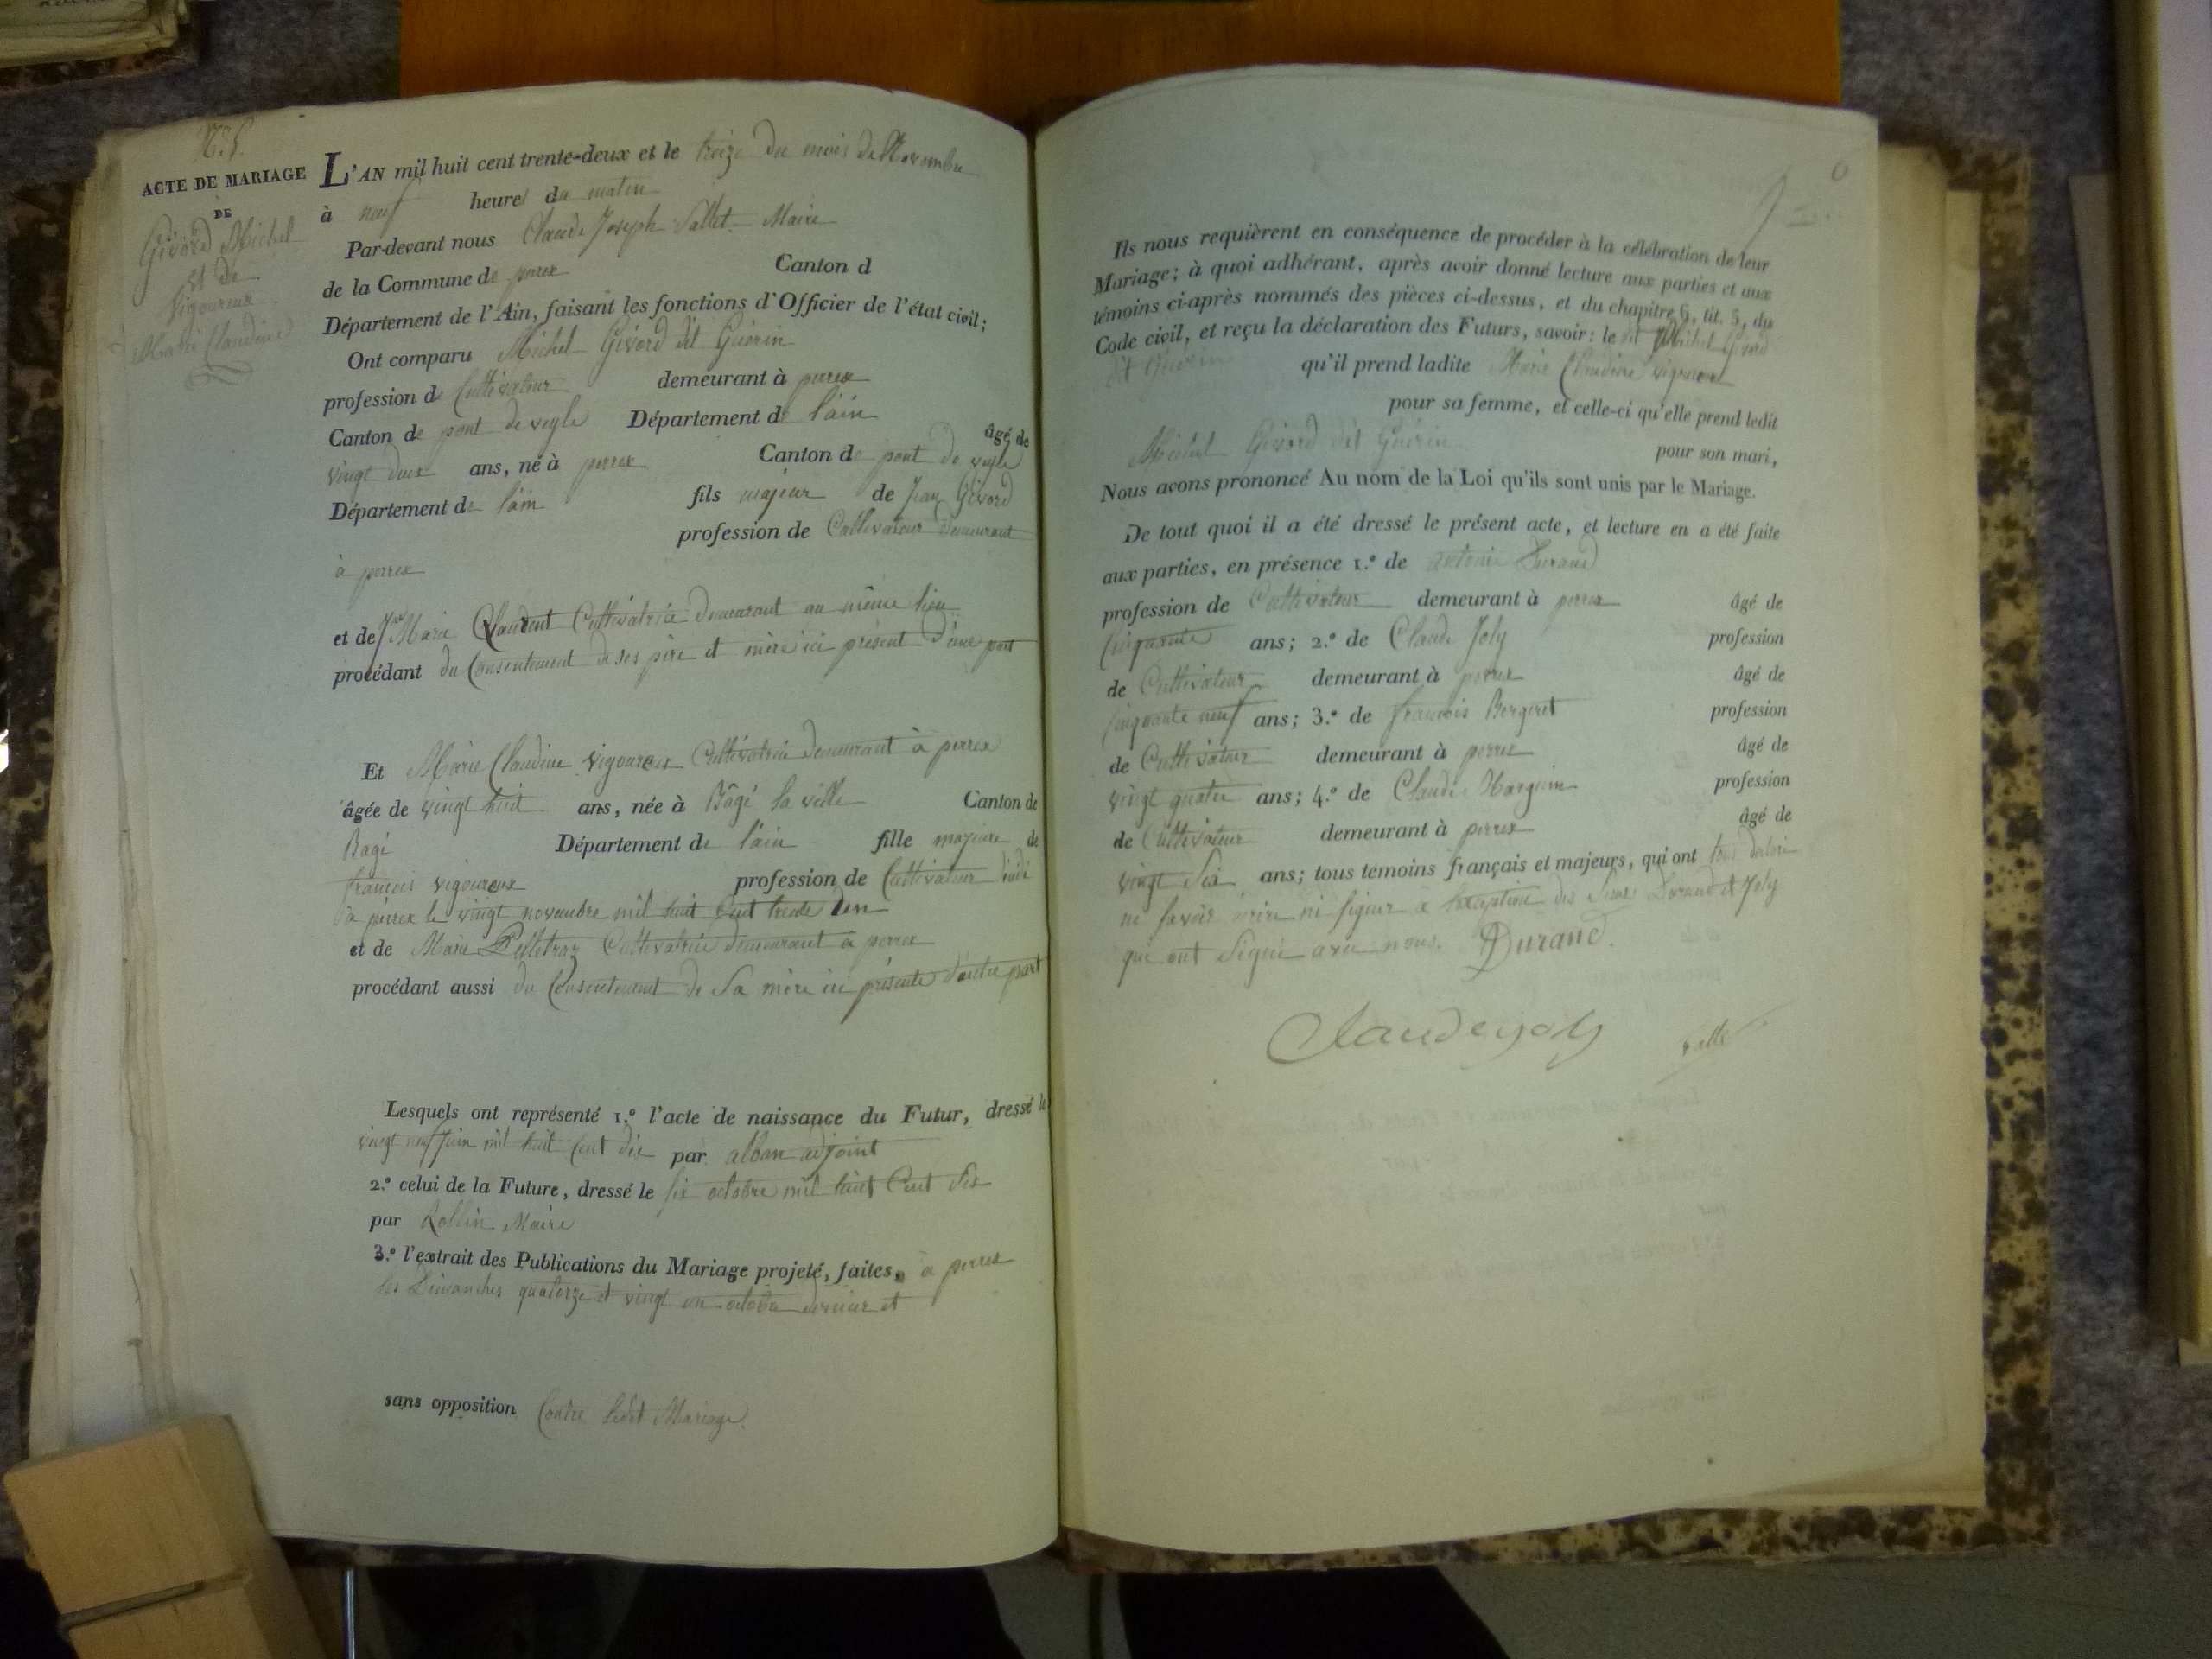 ACTE DE MARIAGE
DE
Givord Michel
et de
Vigoureux
Marie Claudine
L'AN mil huit cent trente-deux et le treize du mois de Novembre
à neuf heures du matin
Par-devant nous Claude Joseph Sallet Maire
de la Commune de perrex Canton d
Département de l'Ain, faisant les fonctions d'Officier de l'état civil;
Ont comparu Michel Givord dit Guérin
profession de Cultivateur demeurant à perrex
Canton de pont de veyle Département de l'ain
âgé de
vingt deux ans, né à perrex Canton de pont de veyle
Département de l'ain fils majeur de Jean Givord
profession de Cultivateur demeurant
à perrex
et de Marie Cultivatrice demeurant au même lieu
procédant du Consentement de ses père et mère ici présent d'une part
Et Marie Claudine vigoureux Cultivatrice demeurant à perrex
âgée de vingt huit ans, née à Bâgé la ville Canton de
Bagé Département de l'ain fille majeure de
francois vigoureux profession de Cultivateur
à perrex le vingt novembre mil huit Cent trente
et de Marie Cultivatrice demeurant à perrex
procédant aussi du Consentement de Sa mère ici présente d'autre part
Lesquels ont représenté 1.º l'acte de naissance du Futur, dressé le
vingt neuf Juin mil huit Cent dix par alban adjoint
2.º celui de la Future, dressé le six octobre mil huit Cent
par Rollin Maire
3.º l'extrait des Publications du Mariage projeté, faites, à perrex
les Dimanches quatorze et vingt un octobre dernier et
sans opposition Contre ledit Mariage.
6
Ils nous requièrent en conséquence de procéder à la célébration de leur
Mariage; à quoi adhérant, après avoir donné lecture aux parties et aux
témoins ci-après nommés des pièces ci-dessus, et du chapitre 6, tit. 5, du
Code civil, et reçu la déclaration des Futurs, savoir: le dit Michel Givord
dit Guérin qu'il prend ladite Marie Claudine vigoureux
pour sa femme, et celle-ci qu'elle prend ledit
Michel Givord dit Guérin pour son mari,
Nous avons prononcé Au nom de la Loi qu'ils sont unis par le Mariage.
De tout quoi il a été dressé le présent acte, et lecture en a été faite
aux parties, en présence 1.º de antoine Durand
profession de Cultivateur demeurant à perrex âgé de
Cinquante ans; 2.º de Claude Joly profession
de Cultivateur demeurant à perrex âgé de
Cinquante neuf ans; 3.º de francois Bergeret profession
de Cultivateur demeurant à perrex âgé de
vingt quatre ans; 4.º de Claude profession
de Cultivateur demeurant à perrex âgé de
vingt Six ans; tous témoins français et majeurs, qui ont tous déclaré
ne savoir écrire ni signer à l'exception des Sieurs Durand et Joly
qui ont Signé avec nous. Durand.
Claude joly